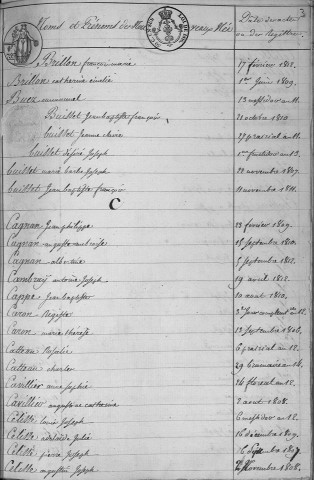 3
Noms et Prénoms des Nouveaux Nés
Date des actes ou des Registres.
Brillon françois marie 17 février 1812.
Brillon catharine emilie 1er Juin 1809.
Buez emmanuel 13 messidor an 11.
Buillet Jean baptiste françois 21 octobre 1810
Buillet Jeanne 27 prairial an 11.
Buillet désiré Joseph 1er fructidor an 13.
Buillet marie barbe Joseph 22 novembre 1807.
Buillet Jean baptiste françois 11 novembre 1811.
C
Cagnan Jean philippe 23 février 1809.
Cagnan augustine 15 septembre 1810.
Cagnan albertine 5 septembre 1812.
Cambray antoine Joseph 19 avril 1812.
Cappe Jean baptiste 10 aout 1810.
Caron Registe 3e Jour an 12.
Caron marie therese 13 septembre 1806.
Catteau Rosalie 6 prairial an 12.
Catteau charles 29 brumaire an 14.
Cavillier anne sophie 24 floreal an 12.
Cavillier augustine catherine 2 aout 1808.
Celisse louis Joseph 6 messidor an 12.
Celisse adelaïde Julie 16 décembre 1807.
Celisse pierre Joseph 1807.
Celisse augustin Joseph novembre 1808.